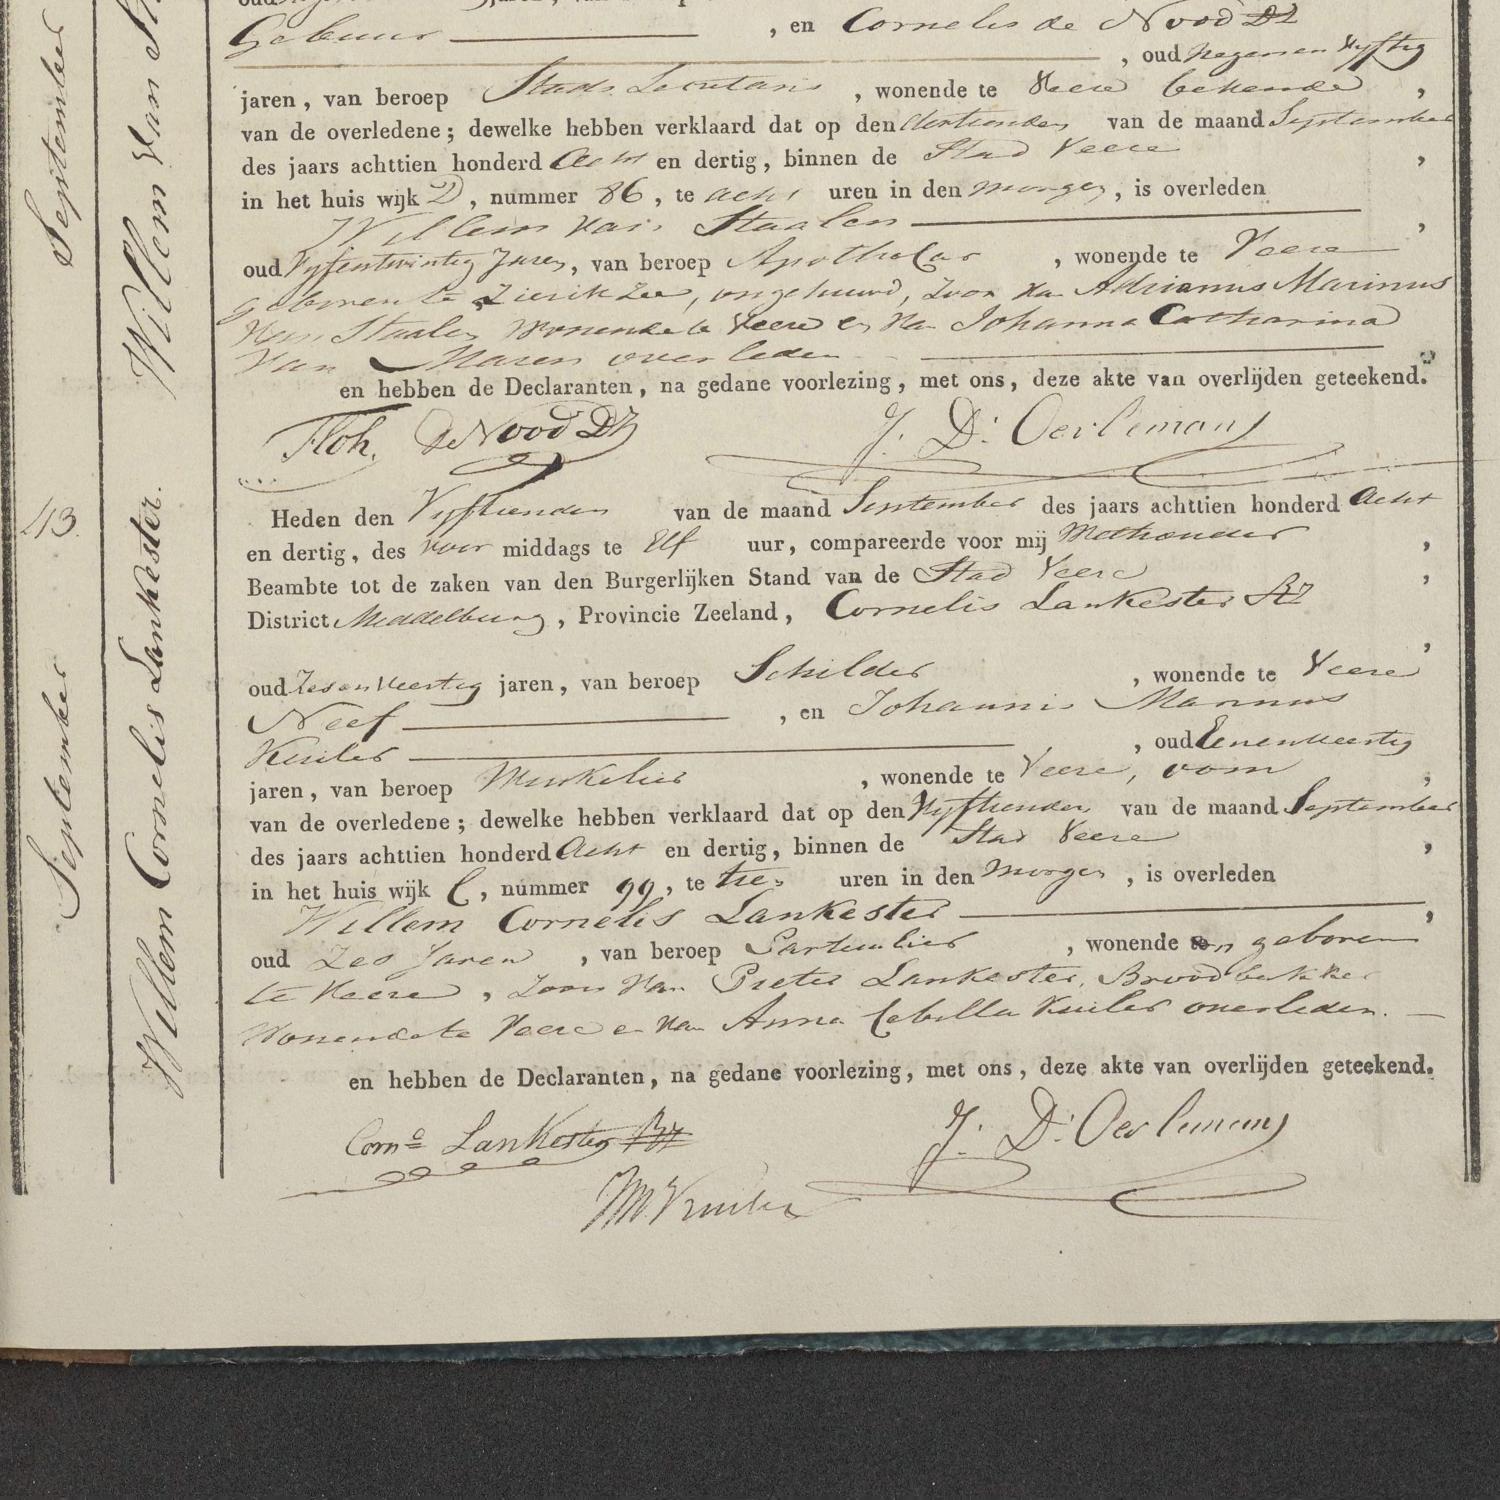 Gebuur , en Cornelis de Nood DZ
, oud negen en vyftig
jaren, van beroep Stads Secretaris , wonende te Veere bekende ,
van de overledene; dewelke hebben verklaard dat op den dertienden van de maand September
des jaars achttien honderd Acht en dertig, binnen de Stad Veere ,
in het huis wijk D, nummer 86, te acht uren in den morgen, is overleden
Willem van Staalen ,
oud Vyfentwintig Jaren, van beroep Apothecar , wonende te Veere
geboren te Zierikzee, ongehuwd, Zoon van Adrianus Marinus
van Staalen wonende te Veere en van Johanna Catharina
van Maren overleden
en hebben de Declaranten, na gedane voorlezing, met ons, deze akte van overlijden geteekend.
Floh. De Nood DZ J. D. Oerlemans
Heden den Vyftienden van de maand September des jaars achttien honderd Acht
en dertig, des voor middags te Elf uur, compareerde voor mij Wethouder ,
Beambte tot de zaken van den Burgerlijken Stand van de Stad Veere ,
District Middelburg, Provincie Zeeland, Cornelis Lankester
,
oud Zes en Veertig jaren, van beroep Schilder , wonende te Veere
Neef , en Johannis Marinus
Kuiler , oud Eenenveertig
jaren, van beroep Winkelier , wonende te Veere, oom ,
van de overledene; dewelke hebben verklaard dat op den Vyftienden van de maand September
des jaars achttien honderd Acht en dertig, binnen de Stad Veere ,
in het huis wijk C, nummer 99, te uren in den Morgen , is overleden
Willem Cornelis Lankester ,
oud Zes Jaren , van beroep Particulier , wonende en geboren
te Veere, Zoon van Pieter Lankester, Broodbakker
Wonende te Veere en van Anna Cebilla Kuiler overleden.
en hebben de Declaranten, na gedane voorlezing, met ons, deze akte van overlijden geteekend.
Corns Lankester J. D. Oerlemans
JM Kuiler
September
Willem van St
43.
September
Willem Cornelis Lankester.